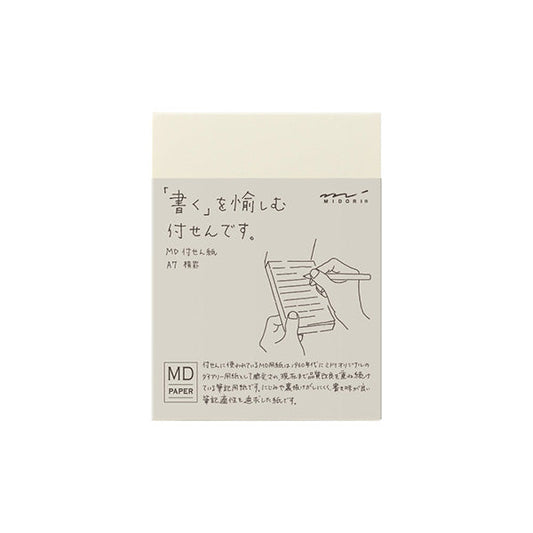 「書く」を愉しむ
付せんです。
MD 付せん紙
A7 横罫
mi
MIDORI
MD
PAPER
付せんに使われているMD用紙は1960年代にミドリオリジナルの
ダイアリー用紙として開発され、現在まで品質改良を重ね続け
ている筆記用紙です。にじみや裏抜けがしにくく、書き味が良い
筆記適性を追求した紙です。